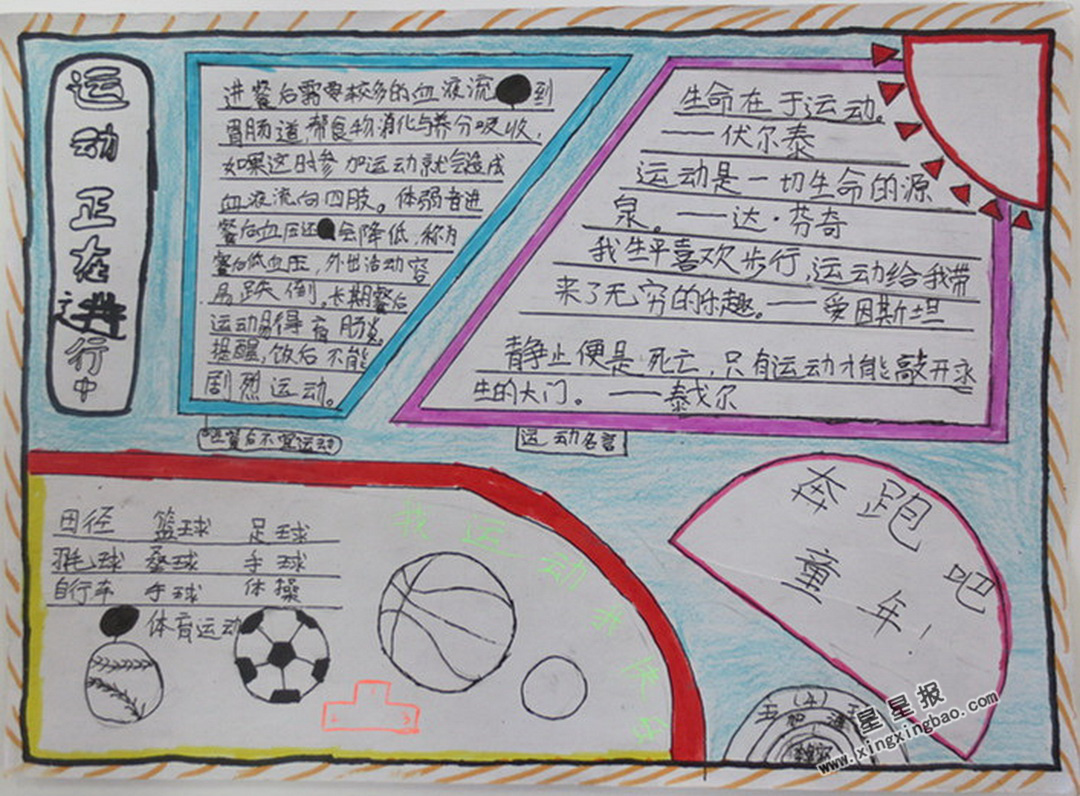 运动正在进行中
进餐后需要较多的血液流到
胃肠道,帮食物消化与养分吸收,
如果这时参加运动就会造成
血液流向四肢。体弱者进
餐后血压还会降低,称为
餐后低血压,外出活动容
易跌倒。长期餐后
运动易得盲肠炎。
提醒,饭后不能
剧烈运动。
进餐后不宜运动
生命在于运动。
——伏尔泰
运动是一切生命的源
泉。——达·芬奇
我生平喜欢步行,运动给我带
来了无穷的乐趣。——爱因斯坦
静止便是死亡,只有运动才能敲开永
生的大门。——泰戈尔
运动名言
田径 篮球 足球
羽毛球 垒球 手球
自行车 手球 体操
体育运动
我运动
1
2 3
奔跑吧
童年!
五(4)
星星报
www.xingxingbao.com